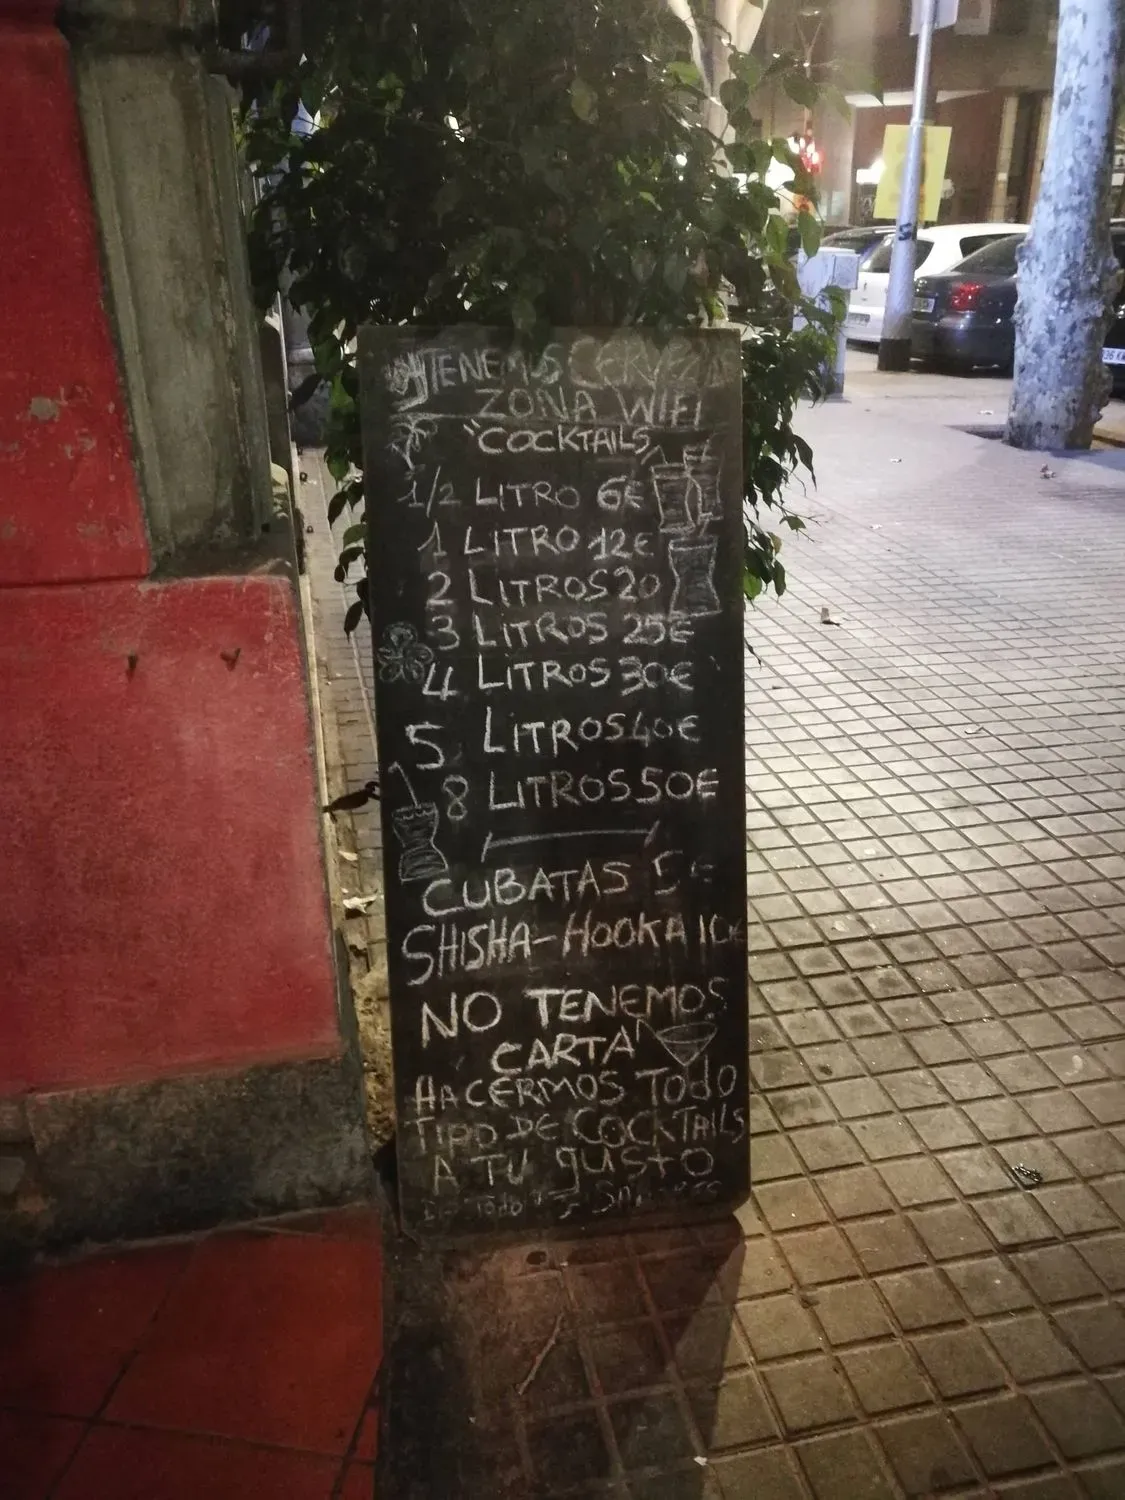 TENEMOS CERVEZAS
ZONA WIFI
"COCKTAILS
1/2 LITRO 6€
1 LITRO 12€
2 LITROS 20
3 LITROS 25€
4 LITROS 30€
5 LITROS 40€
8 LITROS 50€
CUBATAS 5€
SHISHA-HOOKA 10€
NO TENEMOS
CARTA
HACERMOS TODO
TIPO DE COCKTAILS
A TU gUSTO
DE TODO